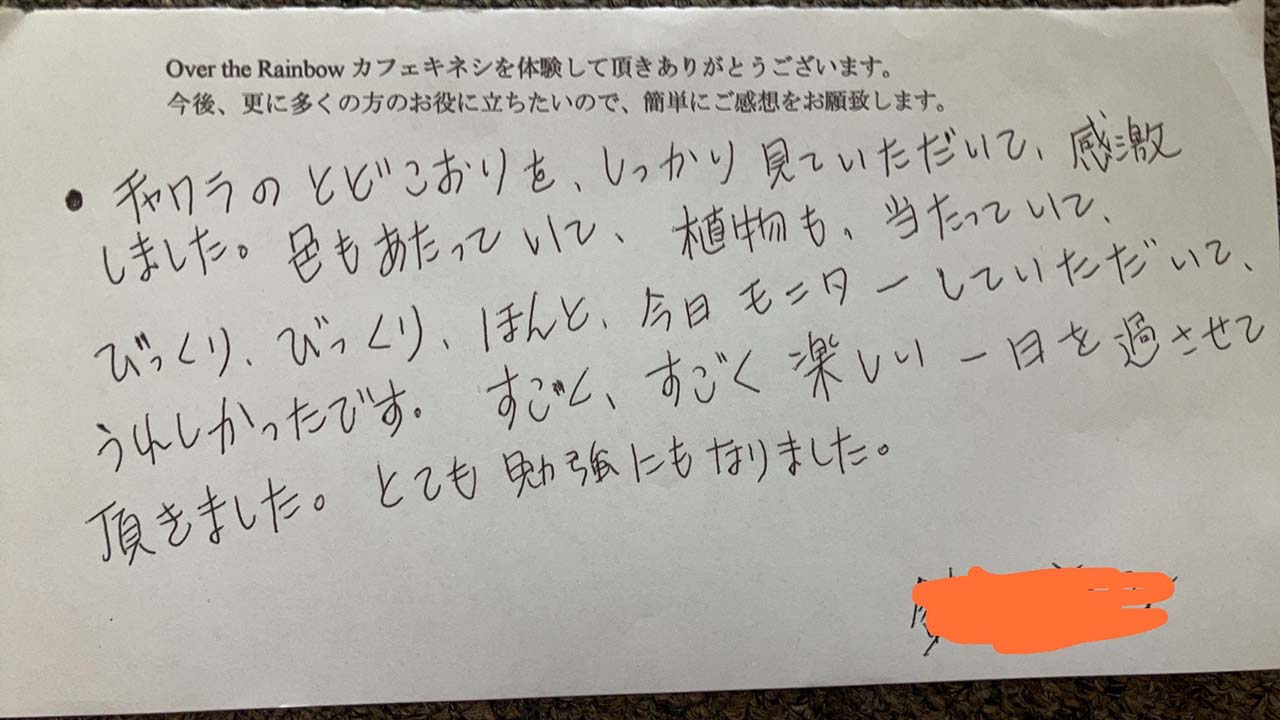 Over the Rainbow カフェキネシを体験して頂きありがとうございます。
今後、更に多くの方のお役に立ちたいので、簡単にご感想をお願致します。
• チャワラのとどこおりを、しっかり見ていただいて、感激
しました。色もあたっていて、植物も、当たっていて、
びっくり、びっくり、ほんと、今日モニターしていただだいて、
うれしかったです。すごく、すごく楽しい一日を過させて
頂きました。とても勉強にもなりました。